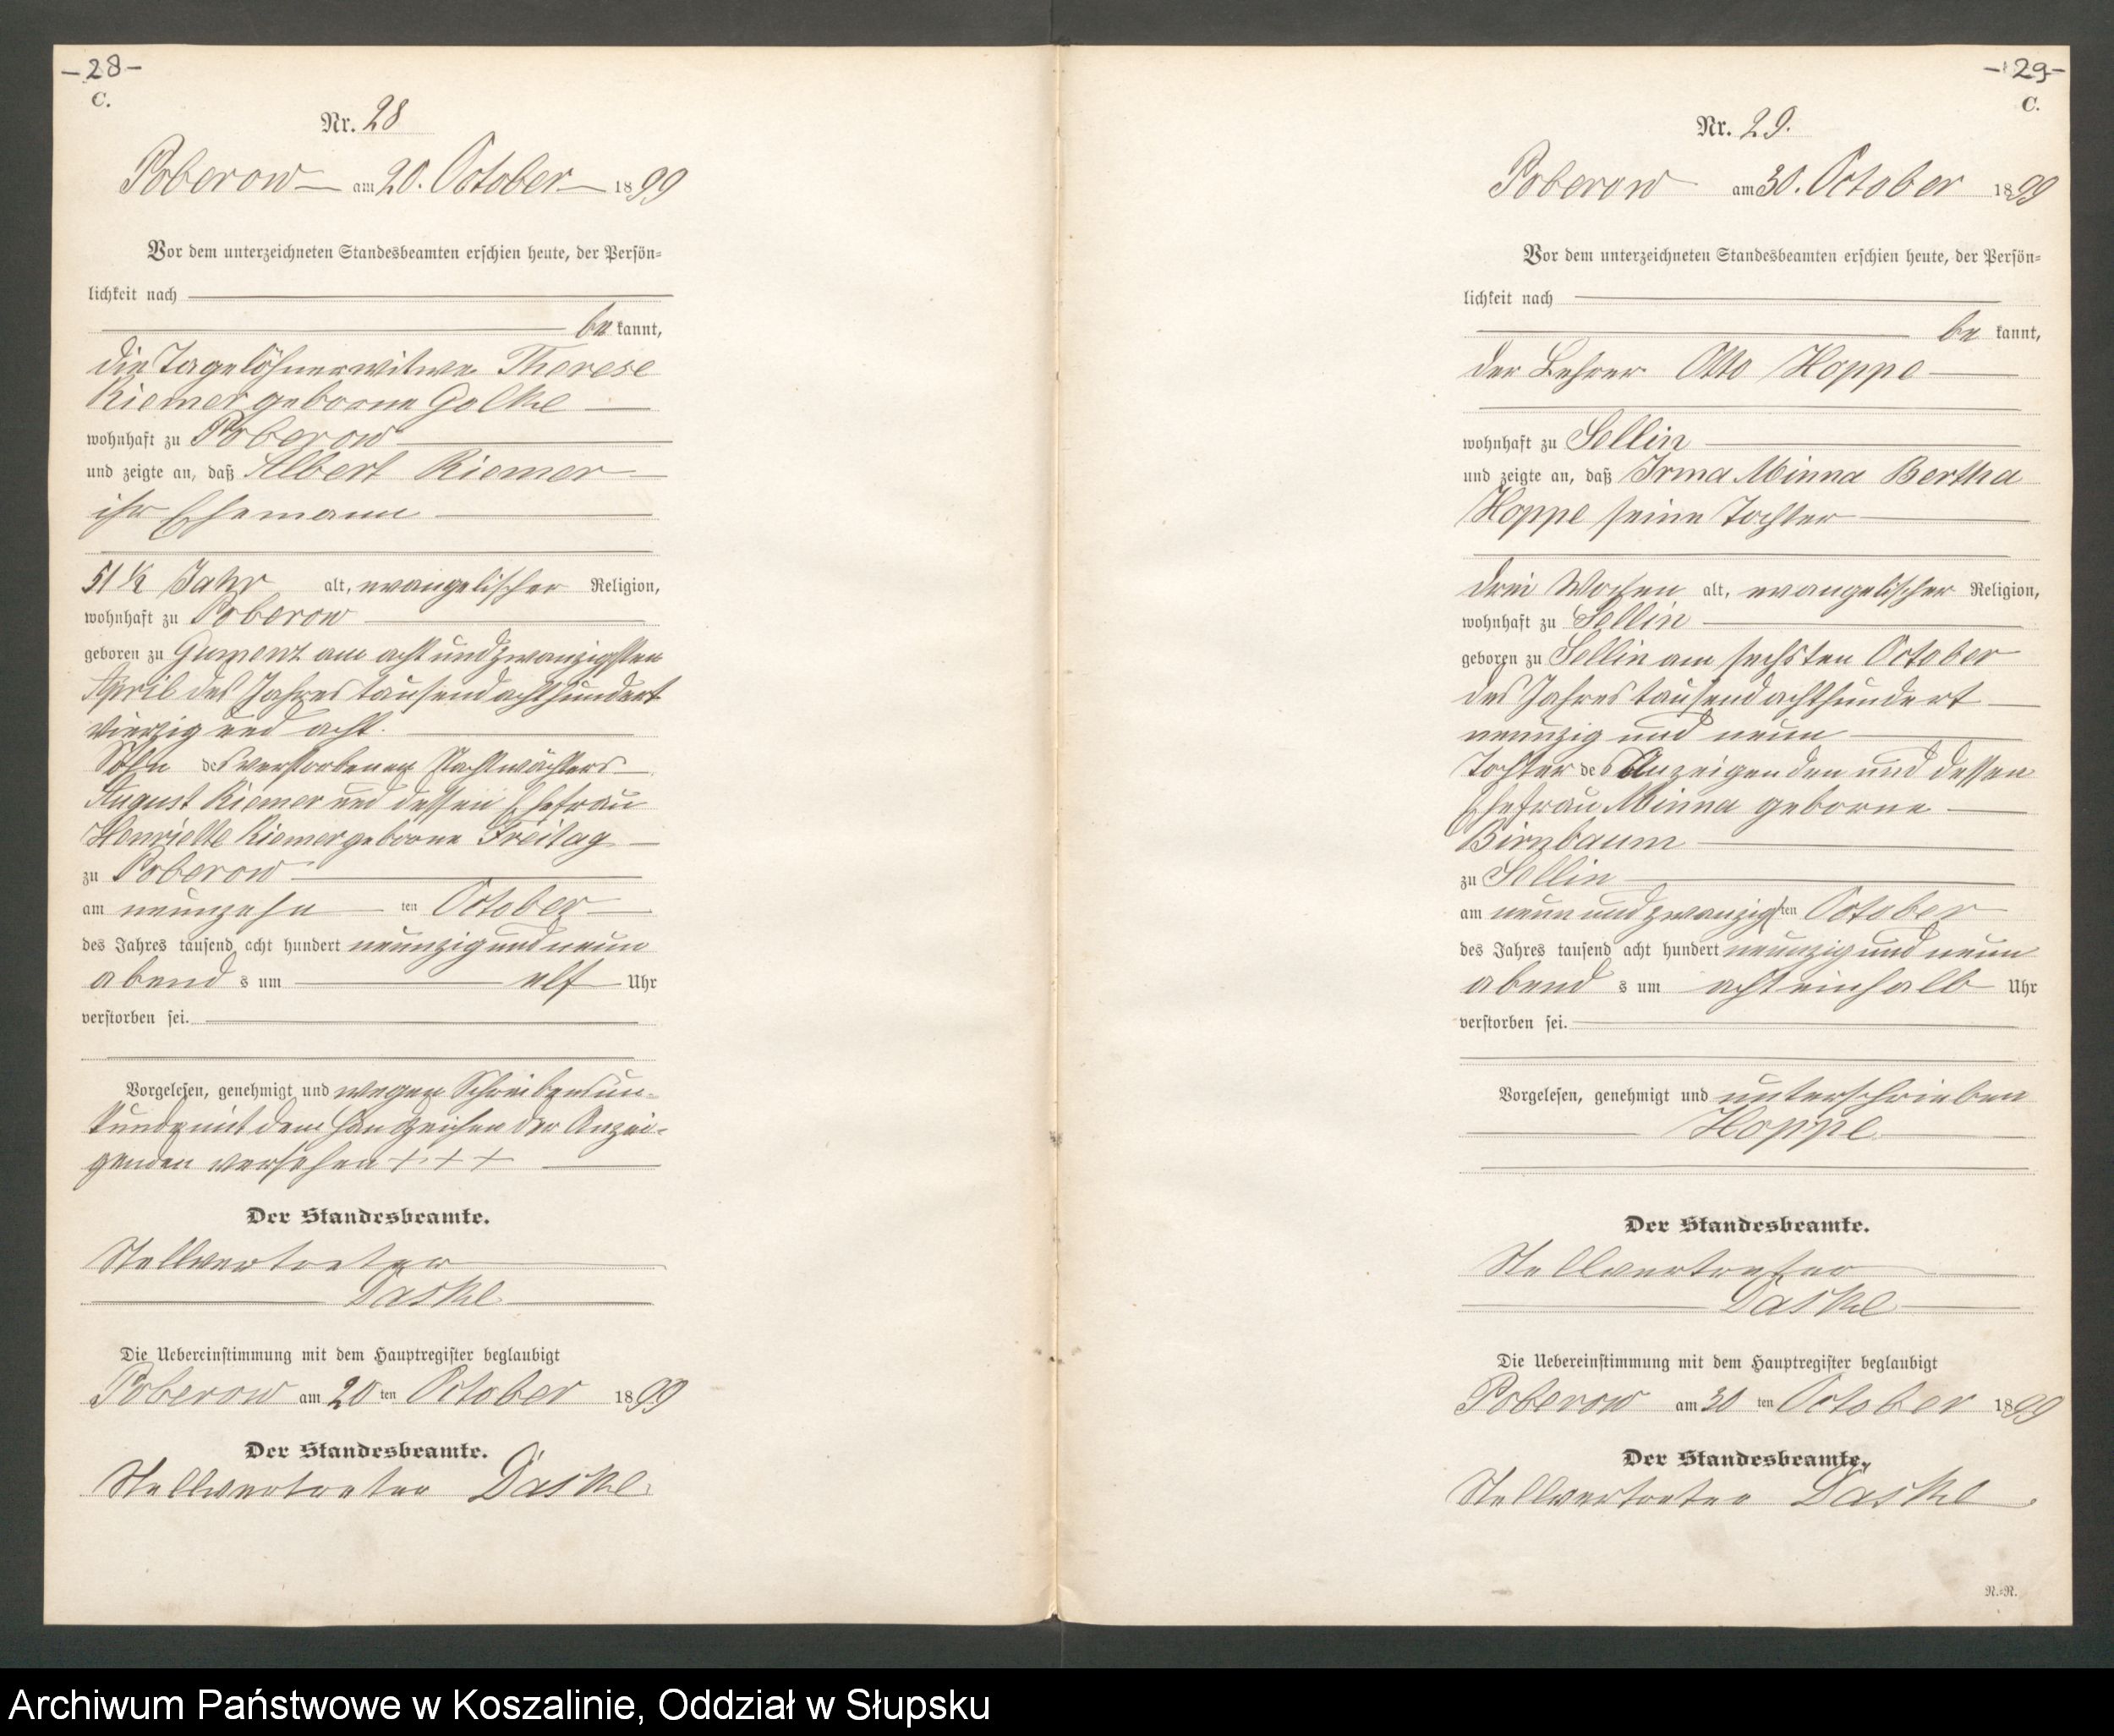 -28-
C.
Nr. 28
Poberow am 20. October 1899
Vor dem unterzeichneten Standesbeamten erschien heute, der Persön-
lichkeit nach
be kannt,
die Tagelöhnerwitwe Therese
Riemer geborne Golke
wohnhaft zu Poberow
und zeigte an, daß Albert Riemer
ihr Ehemann
51 ½ Jahr alt, evangelischer Religion,
wohnhaft zu Poberow
geboren zu Gumenz am acht und zwanzigsten
April des Jahres tausend achthundert
vierzig und acht.
Sohn des verstorbenen Nachtwächters
August Riemer und dessen Ehefrau
Henriette Riemer geborne Freitag
zu Poberow
am neunzehn ten October
des Jahres tausend acht hundert neunzig und neun
abend s um elf Uhr
verstorben sei.
Vorgelesen, genehmigt und wegen Schreibensun-
kunde mit dem Handzeichen der Anzei-
genden versehen + + +
Der Standesbeamte.
Stellvertreter
Daske
Die Uebereinstimmung mit dem Hauptregister beglaubigt
Poberow am 20 ten October 1899
Der Standesbeamte.
Stellvertreter Daske
-29-
C.
Nr. 29.
Poberow am 30. October 1899
Vor dem unterzeichneten Standesbeamten erschien heute, der Persön-
lichkeit nach
be kannt,
der Lehrer Otto Hoppe
wohnhaft zu Sellin
und zeigte an, daß Irma Minna Bertha
Hoppe seine Tochter
drei Wochen alt, evangelischer Religion,
wohnhaft zu Sellin
geboren zu Sellin am sechsten October
des Jahres tausend achthundert
neunzig und neun
Tochter des Anzeigenden und dessen
Ehefrau Minna geborne
Birnbaum
zu Sellin
am neun und zwanzigsten October
des Jahres tausend acht hundert neunzig und neun
abend s um acht einhalb Uhr
verstorben sei.
Vorgelesen, genehmigt und unterschrieben
Hoppe
Der Standesbeamte.
Stellvertreter
Daske
Die Uebereinstimmung mit dem Hauptregister beglaubigt
Poberow am 30 ten October 1899
Der Standesbeamte.
Stellvertreter Daske
N.=R.
Archiwum Państwowe w Koszalinie, Oddział w Słupsku